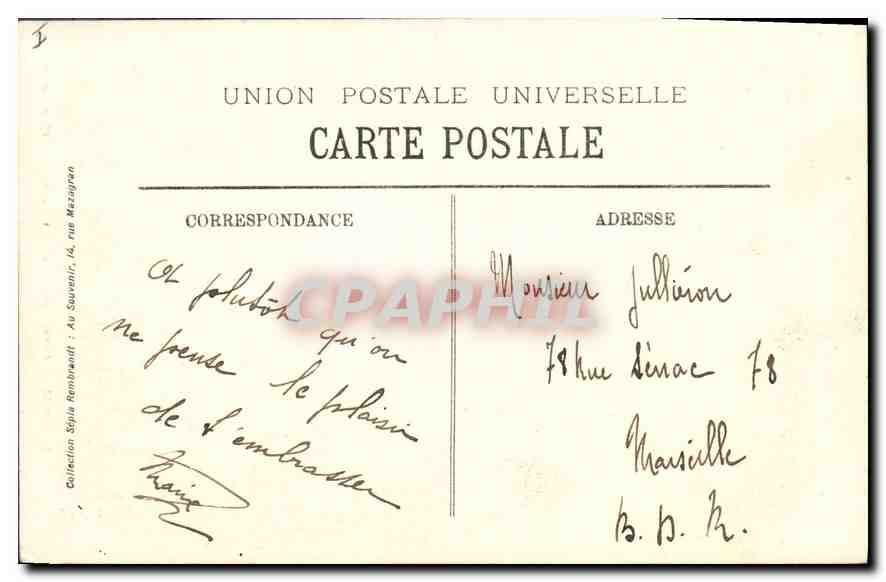 UNION POSTALE UNIVERSELLE
CARTE POSTALE
CORRESPONDANCE
Et plutôt qu'on
ne pense le plaisir
de t'embrasser
ADRESSE
Monsieur Julliéron
78 Rue Sénac 78
Marseille
B. D. R.
Collection Sépia Rembrandt : Au Souvenir, 14, rue Mazagran
CPAPHIL